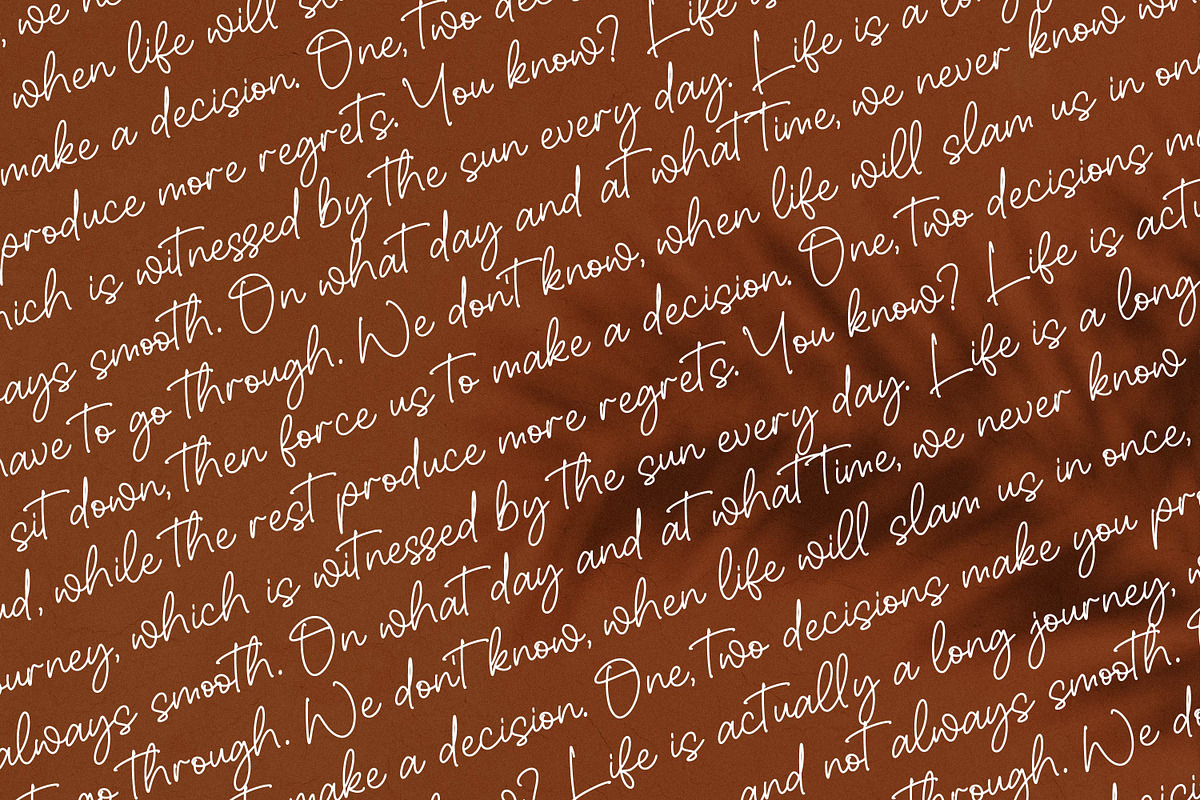 , we ne
when life will sl
make a decision. One, two dec
produce more regrets. You know? Life is
hich is witnessed by the sun every day. Life is a long
ays smooth. On what day and at what time, we never know wh
have to go through. We don't know, when life will slam us in on
sit down, then force us to make a decision. One, two decisions ma
ud, while the rest produce more regrets. You know? Life is actu
ourney, which is witnessed by the sun every day. Life is a long
always smooth. On what day and at what time, we never know
go through. We don't know, when life will slam us in once,
make a decision. One, two decisions make you pr
? Life is actually a long journey, w
and not always smooth.
through. We do